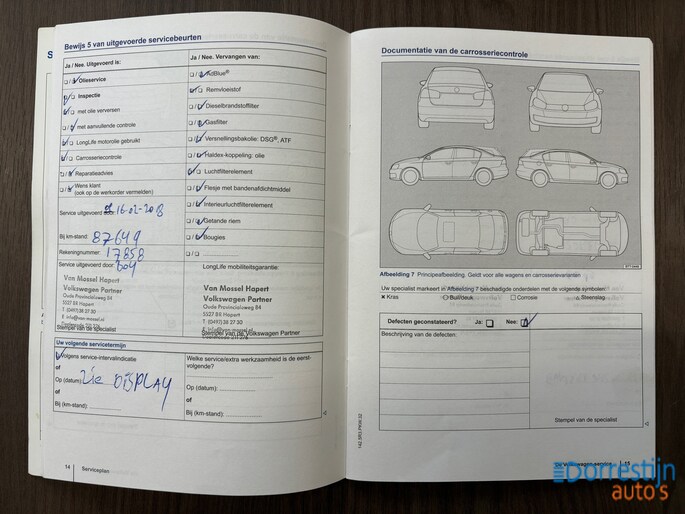 Bewijs 5 van uitgevoerde servicebeurten
Ja / Nee. Uitgevoerd is:
Olieservice
Inspectie
met olie verversen
met aanvullende controle
LongLife motorolie gebruikt
Carrosseriecontrole
Reparatieadvies
Wens klant
(ook op de werkorder vermelden)
Service uitgevoerd door 16-02-2018
Bij km-stand: 87649
Rekeningnummer: 17858
Service uitgevoerd door: 604
Van Mossel Hapert
Volkswagen Partner
Oude Provincialeweg 84
5527 BS Hapert
T. (0497) 38 27 30
E. info@van-mossel.nl
Stempel van de specialist
Ja / Nee. Vervangen van:
AdBlue®
Remvloeistof
Dieselbrandstoffilter
Gasfilter
Versnellingsbakolie: DSG®, ATF
Haldex-koppeling: olie
Luchtfilterelement
Flesje met bandenafdichtmiddel
Interieurluchtfilterelement
Getande riem
Bougies
LongLife mobiliteitsgarantie:
Van Mossel Hapert
Volkswagen Partner
Oude Provincialeweg 84
5527 BS Hapert
T. (0497) 38 27 30
E. info@van-mossel.nl
Stempel van de Volkswagen Partner
Uw volgende servicetermijn
Volgens service-intervalindicatie
of
Op (datum): zie DISPLAY
of
Bij (km-stand):
Welke service/extra werkzaamheid is de eerst-
volgende?
Op (datum):
of
Bij (km-stand):
14 Serviceplan
Documentatie van de carrosseriecontrole
Afbeelding 7 Principeafbeelding. Geldt voor alle wagens en carrosserievarianten
Uw specialist markeert in Afbeelding 7 beschadigde onderdelen met de volgende symbolen:
Kras Buil/deuk Corrosie Steenslag
Defecten geconstateerd? Ja: Nee:
Beschrijving van de defecten:
Stempel van de specialist
Dorrestijn
auto's